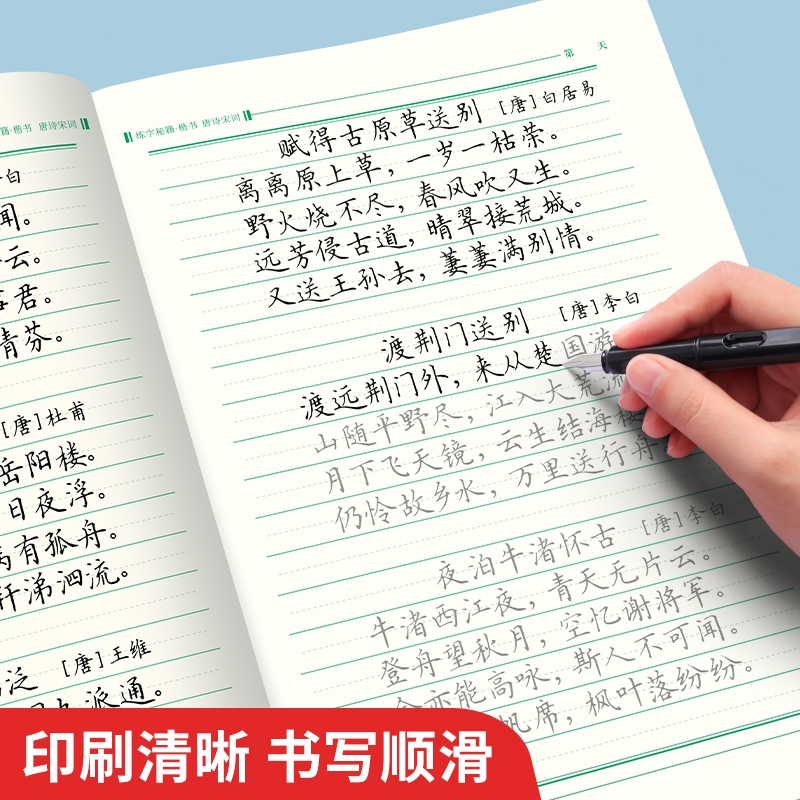 籍·楷书 唐诗宋词
白
闻。
云。
君。
清芬。
[唐]杜甫
岳阳楼。
日夜浮。
有孤舟。
轩涕泗流。
泛 [唐]王维
派通。
第 天
练字秘籍·楷书 唐诗宋词
赋得古原草送别 [唐]白居易
离离原上草，一岁一枯荣。
野火烧不尽，春风吹又生。
远芳侵古道，晴翠接荒城。
又送王孙去，萋萋满别情。
渡荆门送别 [唐]李白
渡远荆门外，来从楚国游
山随平野尽，江入大荒流
月下飞天镜，云生结海楼
仍怜故乡水，万里送行舟
夜泊牛渚怀古 [唐]李白
牛渚西江夜，青天无片云。
登舟望秋月，空忆谢将军。
余亦能高咏，斯人不可闻。
帆席，枫叶落纷纷。
印刷清晰 书写顺滑